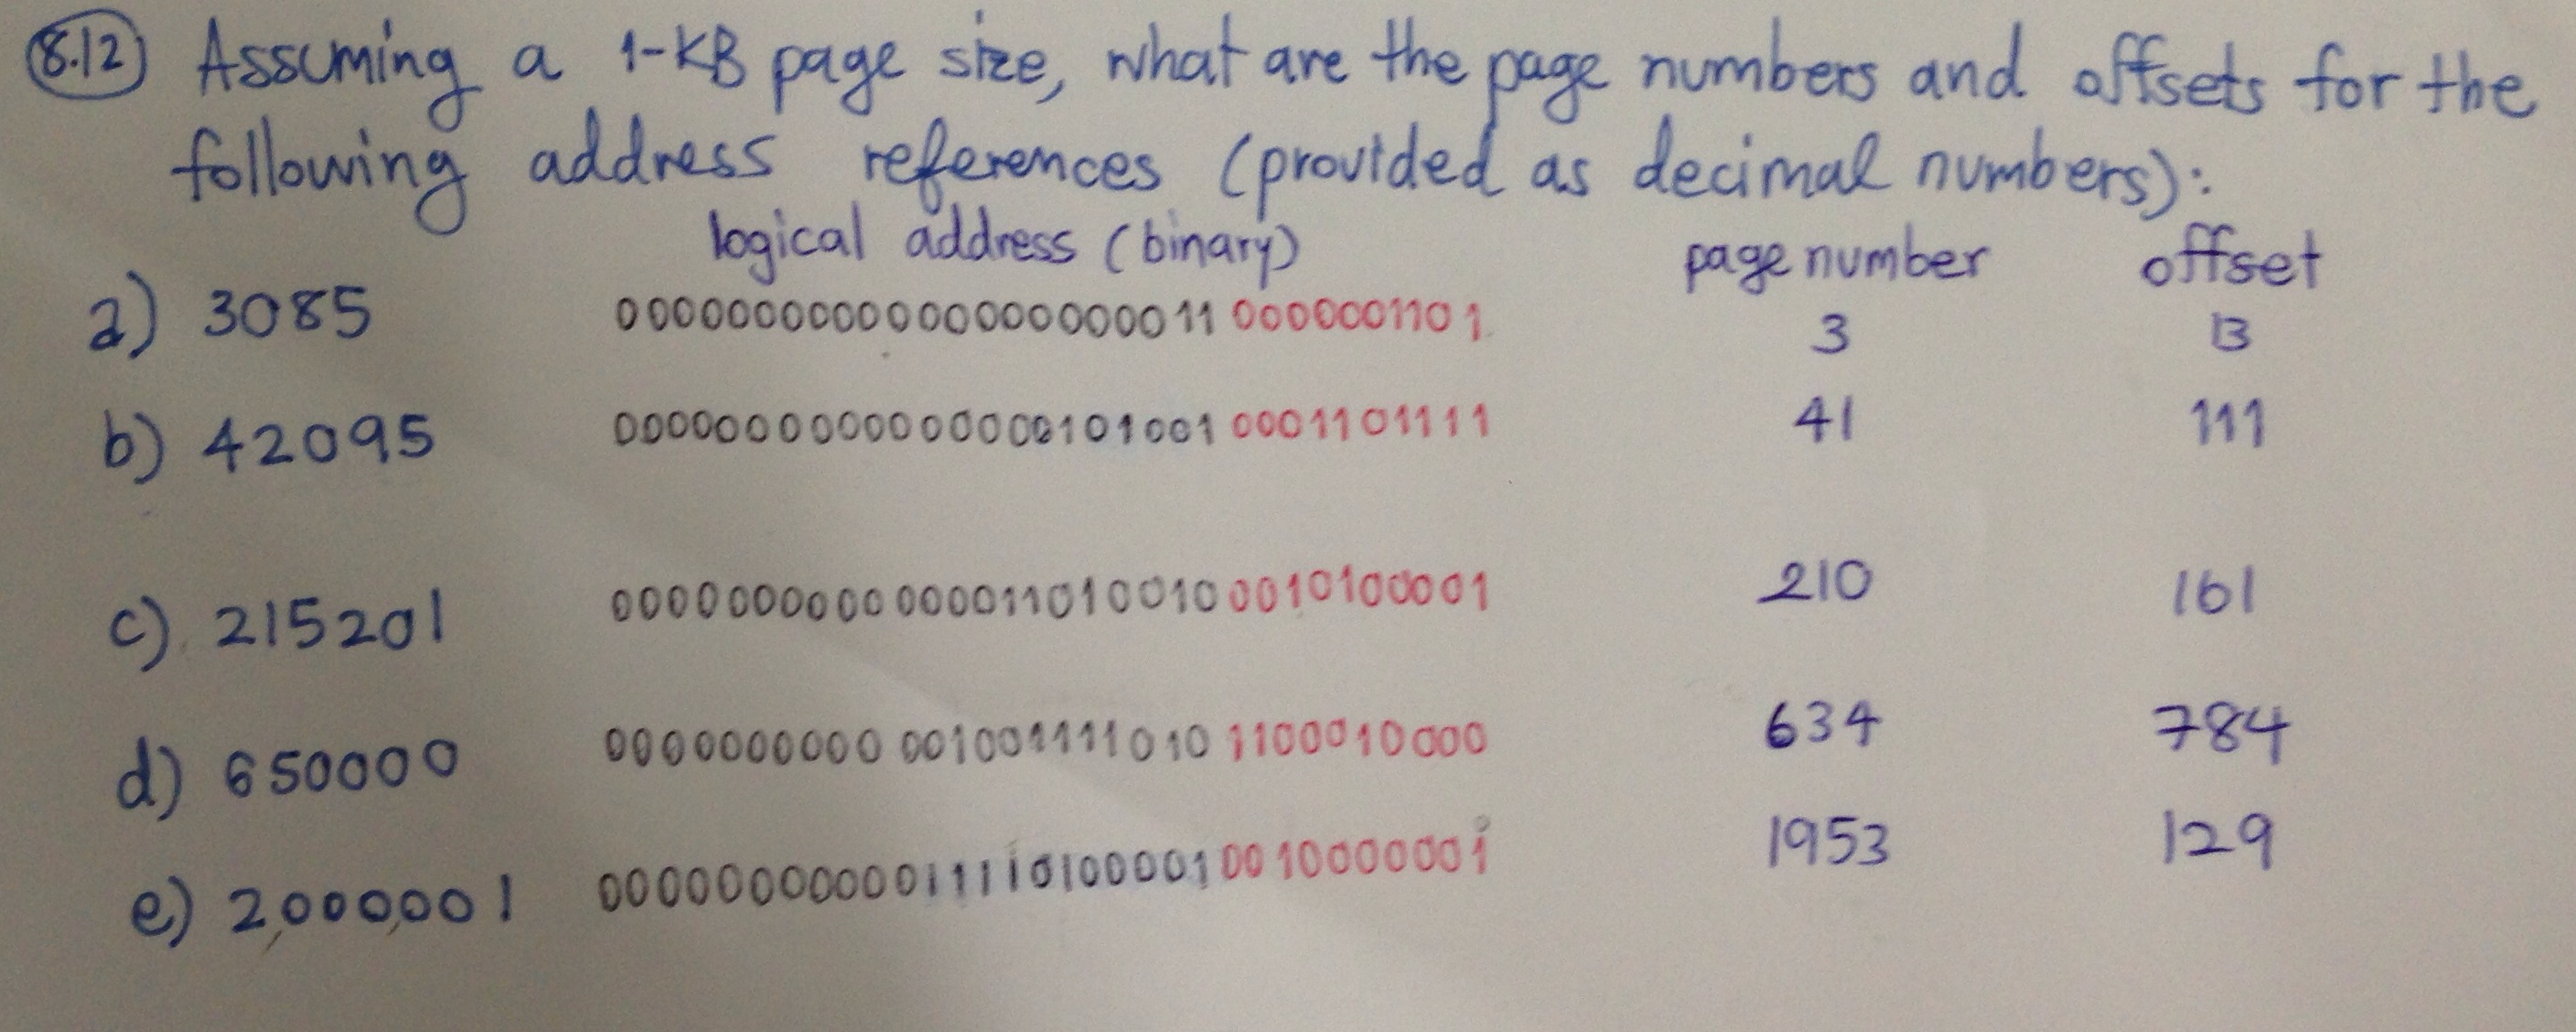 8.12 Assuming a 1-KB page size, what are the page numbers and offsets for the
following address references (provided as decimal numbers):
logical address (binary) page number offset
a) 3085 0000000000000000000011 0000001101 3 13
b) 42095 0000000000000000101001 0001101111 41 111
c) 215201 0000000000000011010010 0010100001 210 161
d) 650000 0000000000001001111010 1100010000 634 784
e) 2,000,001 0000000000011110100001 0010000001 1953 129